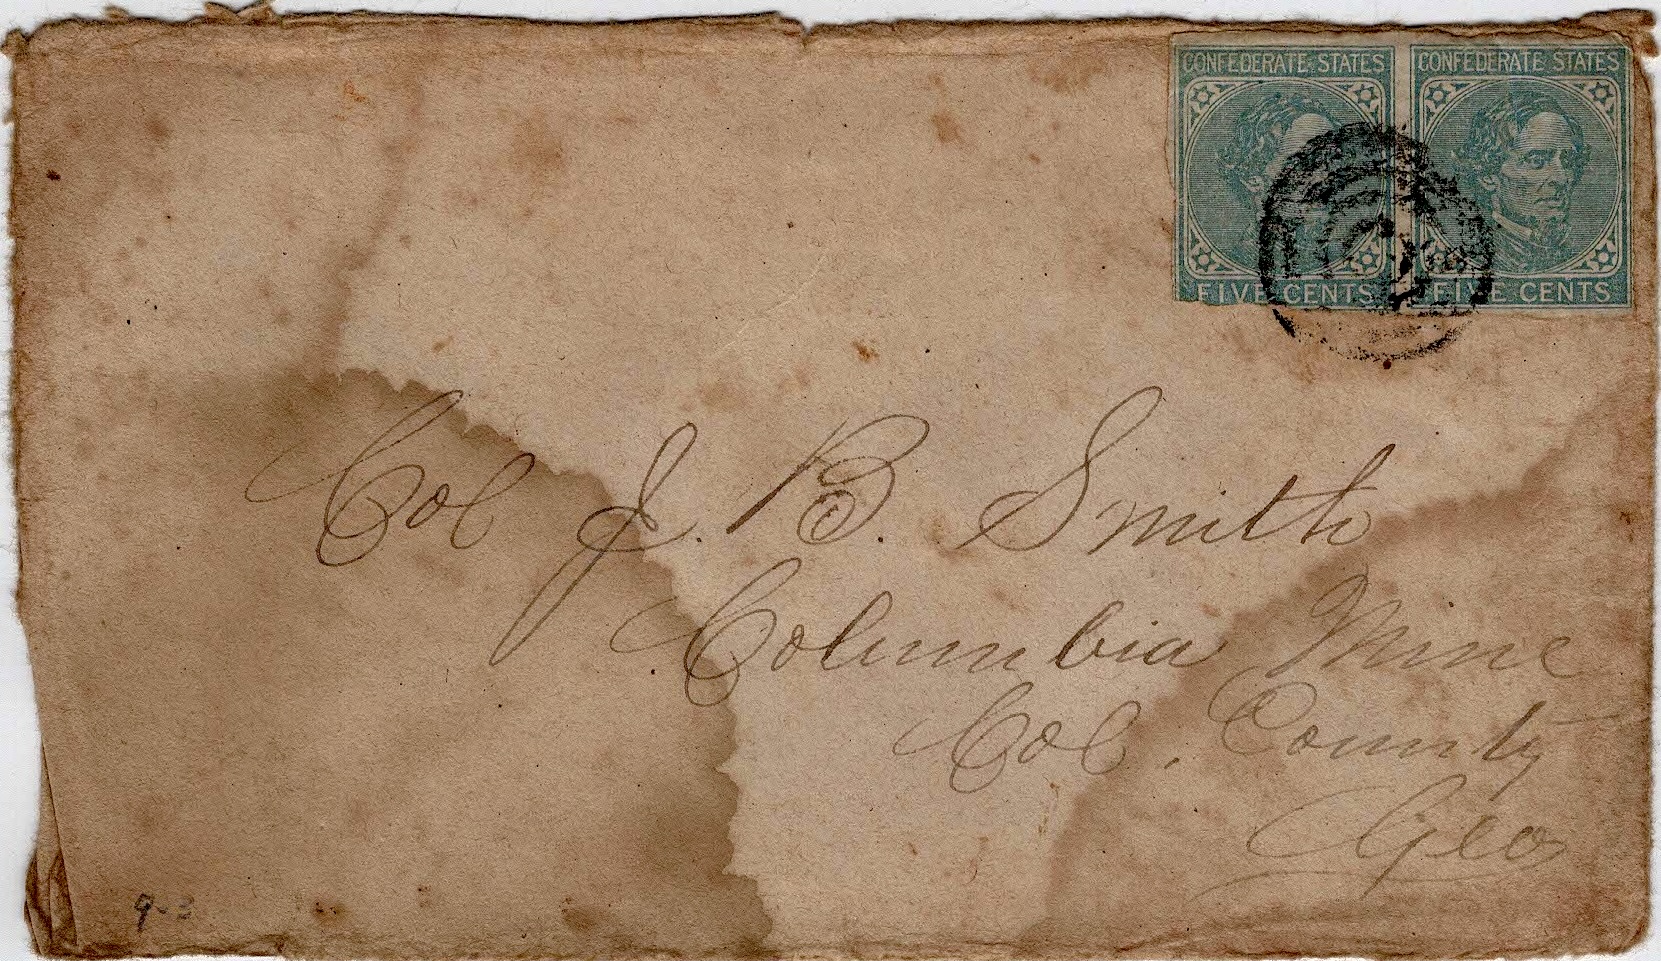 CONFEDERATE STATES CONFEDERATE STATES
FIVE CENTS FIVE CENTS
Col J. B. Smith
Columbia Mine
Col. County
Geo